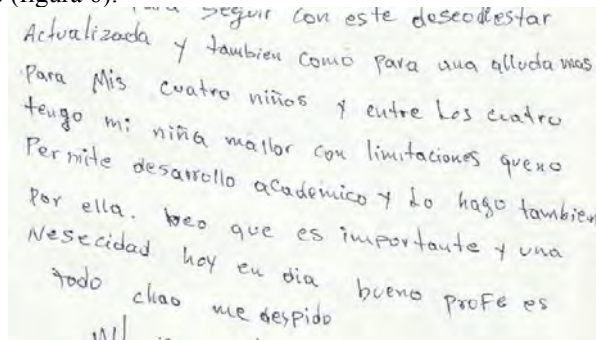 (figura 6).
seguir con este deseo de star
Actualizada y tambien como para una alluda mas
Para Mis cuatro niños y entre Los cuatro
tengo mi niña mallor con limitaciones queno
Permite desarrollo academico y Lo hago tambien
Por ella. beo que es importante y una
Nesecidad hoy en dia bueno profe es
todo chao me despido